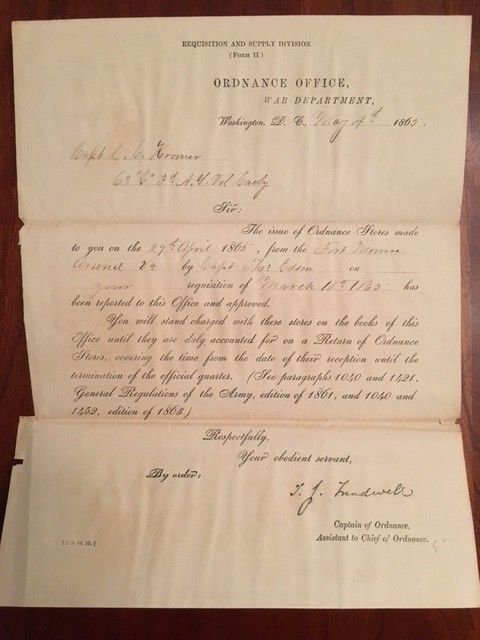 REQUISITION AND SUPPLY DIVISION.
(FORM II)
ORDNANCE OFFICE,
WAR DEPARTMENT,
Washington, D. C. May 4th 1865.
Capt C.
Co "G" 3d N.Y. Vol Cavly
Sir:
The issue of Ordnance Stores made
to you on the 29th April 1865, from the Fort Monroe
Arsenal Va by Capt Thos Edson on
your requisition of March 11th 1865 has
been reported to this Office and approved.
You will stand charged with these stores on the books of this
Office until they are duly accounted for on a Return of Ordnance
Stores, covering the time from the date of their reception until the
termination of the official quarter. (See paragraphs 1040 and 1421,
General Regulations of the Army, edition of 1861, and 1040 and
1452, edition of 1863)
Respectfully,
Your obedient servant,
By order:
T. J. Treadwell
Captain of Ordnance,
Assistant to Chief of Ordnance.